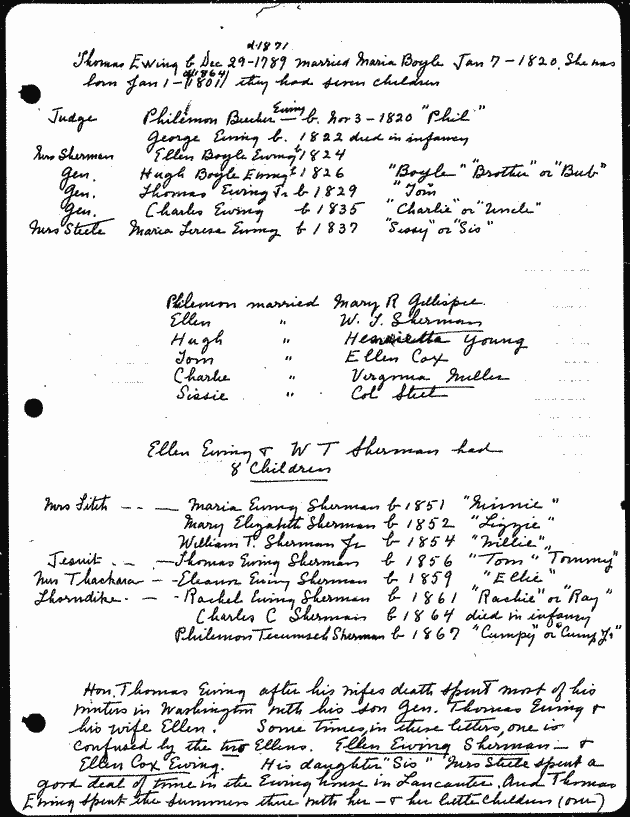 d 1871
Thomas Ewing b Dec 29-1789 married Maria Boyle Jan 7-1820. She was
d 1864
born Jan 1-1801 they had seven children
Judge Philemon Beecher Ewing b. Nov 3-1820 "Phil"
George Ewing b. 1822 died in infancy
Mrs Sherman Ellen Boyle Ewing b 1824
Gen. Hugh Boyle Ewing b 1826 "Boyle" "Brother" or "Bub"
Gen. Thomas Ewing Jr b 1829 "Tom"
Gen. Charles Ewing b 1835 "Charlie" or "Uncle"
Mrs Steele Maria Teresa Ewing b 1837 "Sissy" or "Sis"
Philemon married Mary R Gillispie.
Ellen " W. T. Sherman
Hugh " Henrietta Young
Tom " Ellen Cox
Charlie " Virginia Miller
Sissie " Col Steel
Ellen Ewing & W T Sherman had
8 Children
Mrs Fitch - - - Maria Ewing Sherman b 1851 "Minnie"
Mary Elizabeth Sherman b 1852 "Lizzie"
William T. Sherman Jr b 1854 "Willie"
Jesuit - - - Thomas Ewing Sherman b 1856 "Tom" "Tommy"
Mrs Thackara - - Eleanor Ewing Sherman b 1859 "Ellie"
Thorndike - - - Rachel Ewing Sherman b 1861 "Rachie" or "Ray"
Charles C Sherman b 1864 died in infancy
Philemon Tecumseh Sherman b 1867 "Cumpy" or "Cump Jr"
Hon. Thomas Ewing after his wifes death spent most of his
winters in Washington with his son Gen. Thomas Ewing &
his wife Ellen. Some times, in these letters, one is
confused by the two Ellens. Ellen Ewing Sherman - &
Ellen Cox Ewing. His daughter "Sis" Mrs Steele spent a
good deal of time in the Ewing house in Lancaster. And Thomas
Ewing spent the summers there with her - & her little children (over)